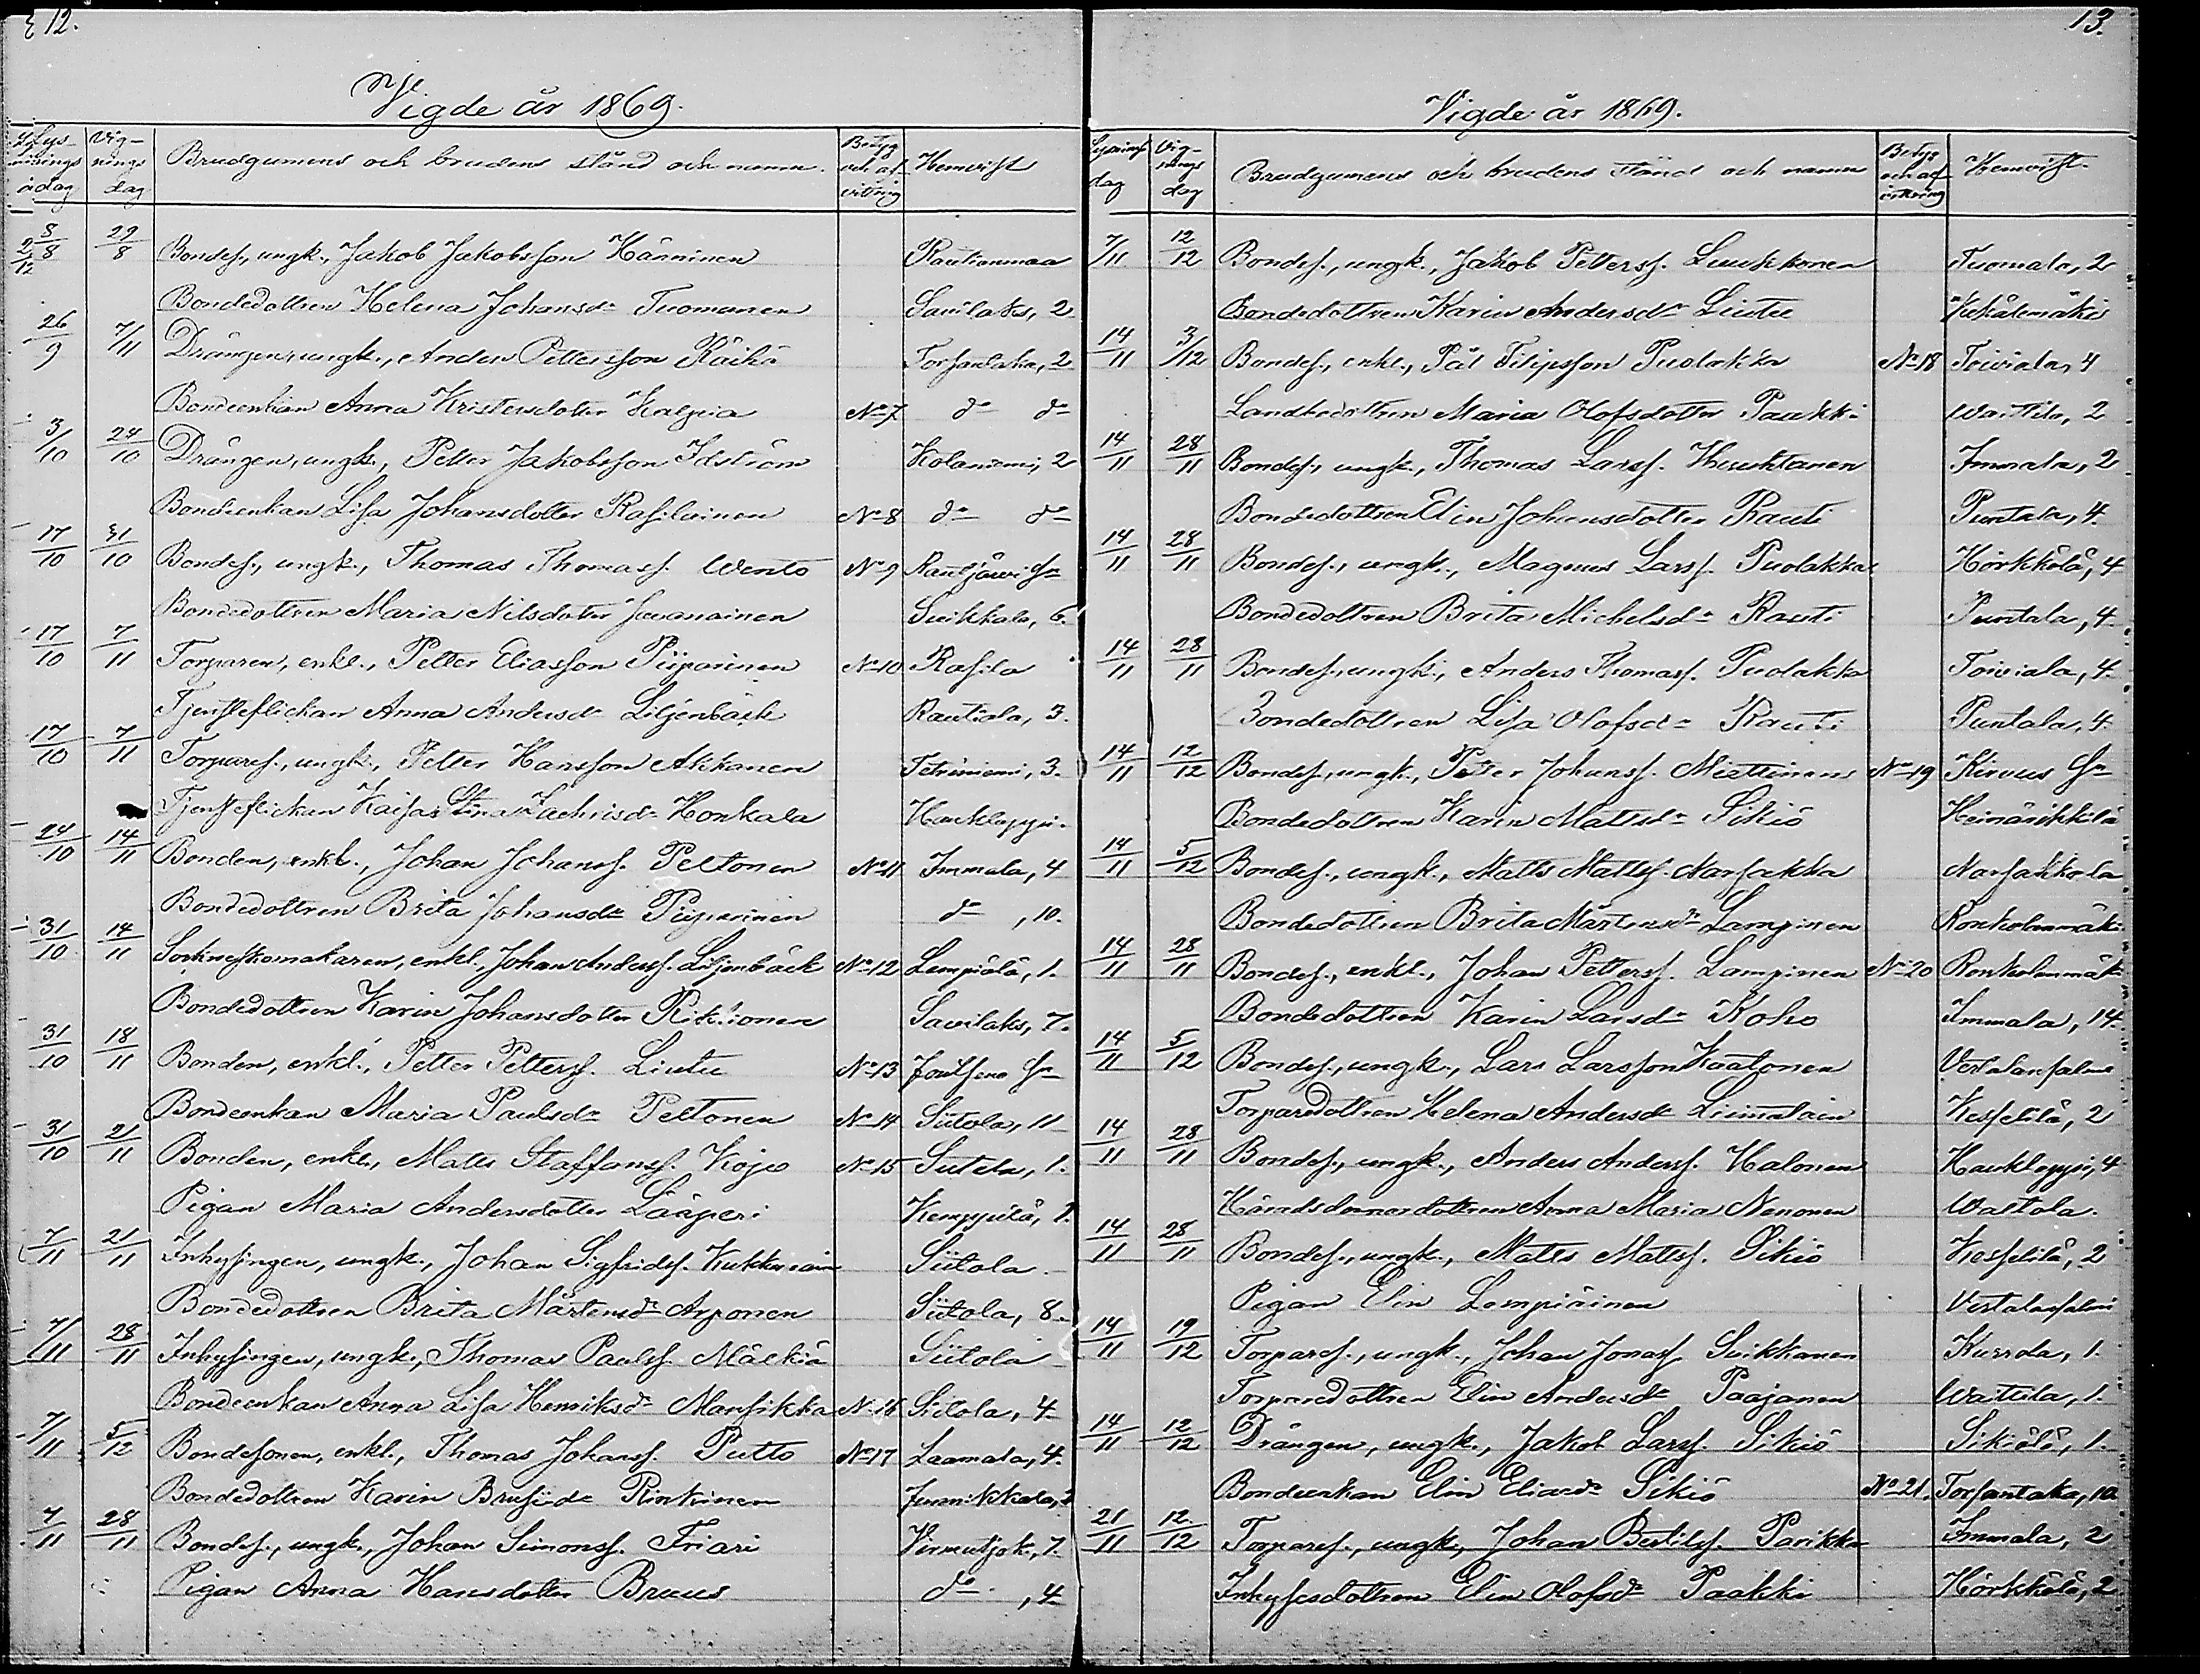 12.
Vigde år 1869.
Lysnings dag Vignings dag Brudgumens och brudens stånd och namn. Betyg och afvittring Hemvist
8/8 29/8 Bondes., ungk., Jakob Jakobsson Hänninen Rautionmaa
Bondedottren Helena Johansdr Tuomanen Savilaks, 2
26/9 7/11 Drängen, ungk., Anders Pettersson Räihä Torsantaka, 2
Bondeenkan Anna Kristersdotter Kalpia No 7 do do
3/10 24/10 Drängen, ungk., Petter Jakobsson Idström Kolaniemi, 2
Bondeenkan Lisa Johansdotter Rasilainen No 8 do do
17/10 31/10 Bondes., ungk., Thomas Thomass. Wento No 9 Rautjärvi Sn
Bondedottren Maria Nilsdotter Javanainen Suikkala, 6.
17/10 7/11 Torparen, enkl., Petter Eliasson Piiparinen No 10 Rasila
Tjensteflickan Anna Andersdr Liljenbäck Rautiala, 3.
17/10 7/11 Torpares., ungk., Petter Hansson Akkanen Tetriniemi, 3.
Tjensteflickan Kaisa Stina Zachrisdr Honkala Haukloppi.
24/10 14/11 Bonden, enkl., Johan Johanss. Peltonen No 11 Immala, 4
Bondedottren Brita Johansdr Piiparinen do, 10.
31/10 14/11 Sockneskomakaren, enkl., Johan Anderss. Liljenbäck No 12 Lempiälä, 1.
Bondedottren Karin Johansdotter Rikkonen Savilaks, 7.
31/10 18/11 Bonden, enkl., Petter Petterss. Liutu No 13 Joutseno Sn
Bondeenkan Maria Paulsdr Peltonen No 14 Siitola, 11
31/10 21/11 Bonden, enkl., Matts Staffanss. Kojo No 15 Sutela, 1.
Pigan Maria Andersdotter Lääperi Kemppilä, 1.
7/11 21/11 Inhysingen, ungk., Johan Sigfridss. Siitola
Bondedottren Brita Mårtensdr Arponen Siitola, 8.
7/11 28/11 Inhysingen, ungk., Thomas Paulss. Mälkiä Siitola
Bondeenkan Anna Lisa Henriksdr Mansikka No 16 Siitola, 4
7/11 5/12 Bondesonen, enkl., Thomas Johanss. Putto No 17 Laamala, 4.
Bondedottren Karin Rinkinen Junnikkala, 2
7/11 28/11 Bondes., ungk., Johan Simonss. Friari Virmutjok., 7.
Pigan Anna Hansdotter Bruus do, 4
13.
Vigde år 1869.
Lysnings dag Vignings dag Brudgumens och brudens stånd och namn Betyg och afvittring Hemvist.
7/11 12/12 Bondes., ungk., Jakob Petterss. Luukkonen Tuomala, 2
Bondedottren Karin Andersdr Liutu Kekälemäki
14/11 3/12 Bondes., enkl., Pål Filipsson Puolakka No 18 Toiviala, 4
Landbodottren Maria Olofsdotter Paakki Wattila, 2
14/11 28/11 Bondes., ungk., Thomas Larss. Huuhtanen Immala, 2
Bondedottren Elin Johansdotter Rauti Puntala, 4.
14/11 28/11 Bondes., ungk., Magnus Larss. Puolakka Hörkkölä, 4
Bondedottren Brita Michelsdr Rauti Puntala, 4.
14/11 28/11 Bondes., ungk., Anders Thomass. Puolakka Toiviala, 4.
Bondedottren Lisa Olofsdr Rauti Puntala, 4.
14/11 12/12 Bondes., ungk., Petter Johanss. Miettinen No 19 Kirvus Sn
Bondedottren Karin Mattsdr Sikiö Heinäsikkilä
14/11 5/12 Bondes., ungk., Matts Mattss. Narsakka Narsakkala
Bondedottren Brita Mårtensdr Lampinen Ronkolanmäki
14/11 28/11 Bondes., enkl., Johan Petterss. Lampinen No 20 Ronkolanmäk
Bondedottren Karin Larsdr Koho Immala, 14.
14/11 5/12 Bondes., ungk., Lars Larsson Kaatonen
Torparedottren Helena Andersdr Liimatain Kesselilä, 2
14/11 28/11 Bondes., ungk., Anders Anderss. Halonen Haukloppi, 4
Häradsdomaredottren Anna Maria Nenonen Wattola.
14/11 28/11 Bondes., ungk., Matts Mattss. Sikiö Kesselilä, 2
Pigan Elin Lempiäinen
14/11 19/12 Torpares., ungk., Johan Jonass. Suikkanen Kurrola, 1.
Torparedottren Elin Andersdr Paajanen Wattila, 1.
14/11 12/12 Drängen, ungk., Jakob Larss. Sikiö Sikiälä, 1.
Bondeenkan Elin Eliasdr Sikiö No 21. Torsantaka, 10
21/11 12/12 Torpares., ungk., Johan Bertilss. Parikka Immala, 2
Inhysesdottren Elin Olofsdr Paakki Hörkkölä, 2